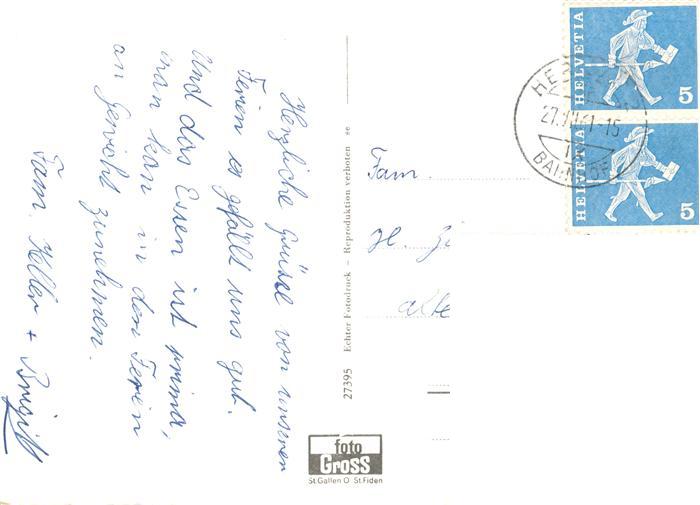 Herzliche Grüsse von unseren
Ferien es gfällt uns gut.
Und das Essen ist prima,
man kan in den Ferien
an Gewicht zunehmen.
Fam. Keller + Brigitt
27395 Echter Fotodruck – Reproduktion verboten se
foto
Gross
St.Gallen O St.Fiden
Fam.
H.
alte
HELVETIA
5
HELVETIA
5
27.
61-16